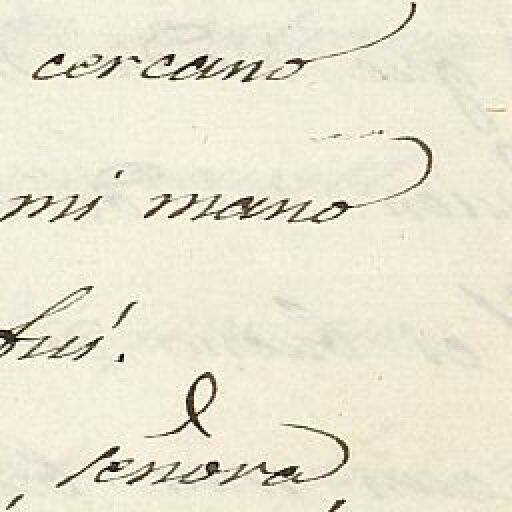 cercano
mi mano
fuí.
señora